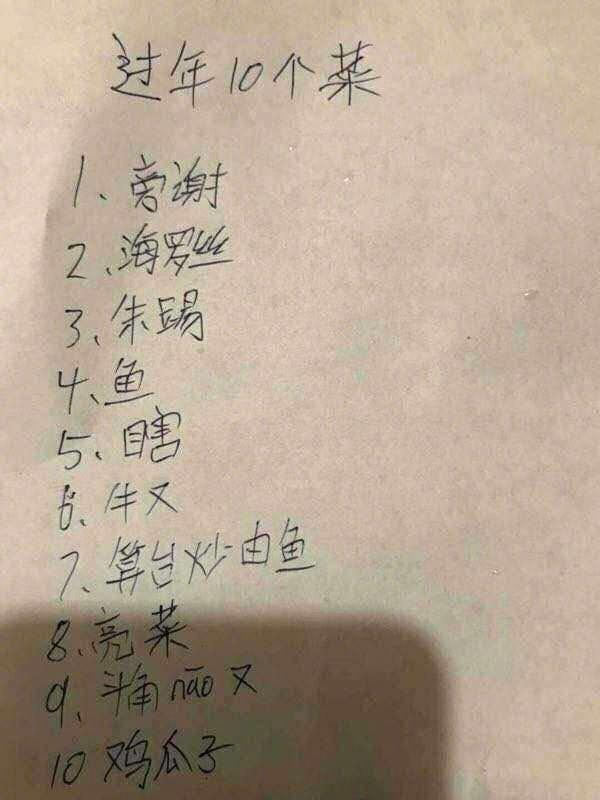 过年10个菜
1、旁谢
2、海罗丝
3、朱踢
4、鱼
5、瞎
6、牛又
7、算台炒由鱼
8、亮菜
9、斗角não又
10 鸡瓜子